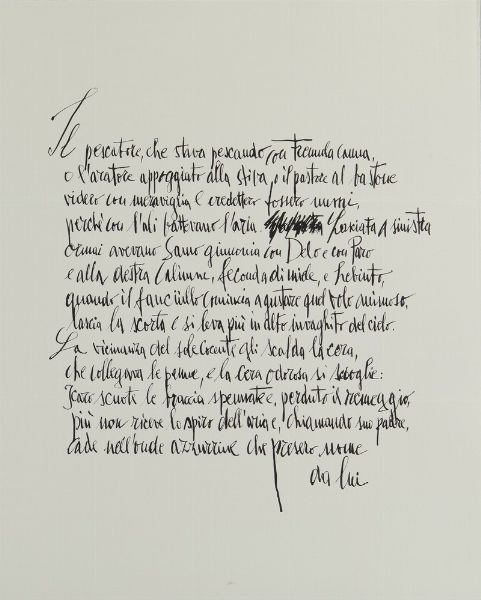 Il pescatore, che stava pescando con tremula canna,
o l'aratore appoggiato alla stiva, o il pastore al bastone
videro con meraviglia e credettero fossero numi,
perché con l'ali battevano l'aria lasciata a sinistra
ormai avevano Samo giunonia con Delo e con Paro
e alla destra Calimne, feconda di miele, e Lebinto,
quando il fanciullo comincia a gustare quel volo animoso,
lascia la scorta e si leva più in alto invaghito del cielo.
La vicinanza del sole cocente gli scalda la cera,
che collegava le penne, e la cera odorosa si scioglie:
Icaro scuote le braccia spennate e, perduto il remeggio,
più non riceve lo spiro dell'aria e, chiamando suo padre,
cade nell'onde azzurrine che presero nome
da lui